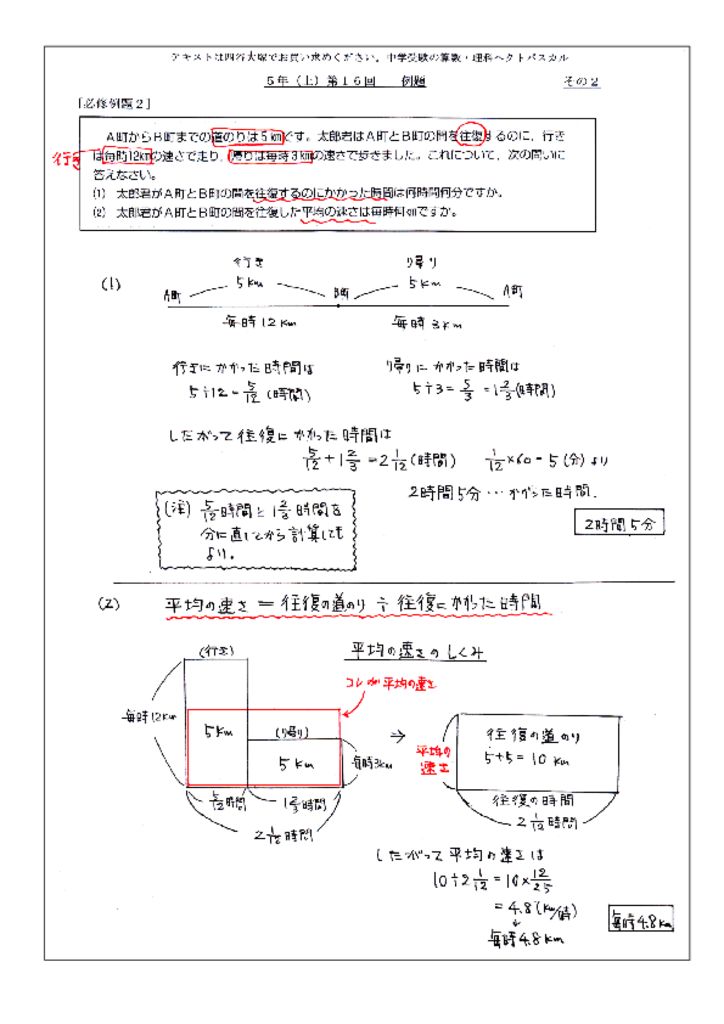 テキストは四谷大塚でお買い求めください。中学受験の算数・理科ヘクトパスカル
5年(上)第16回 例題 その2
[必修例題2]
A町からB町までの道のりは5kmです。太郎君はA町とB町の間を往復するのに、行き
行き は毎時12kmの速さで走り、帰りは毎時3kmの速さで歩きました。これについて、次の問いに
答えなさい。
(1) 太郎君がA町とB町の間を往復するのにかかった時間は何時間何分ですか。
(2) 太郎君がA町とB町の間を往復した平均の速さは毎時何kmですか。
行き 帰り
(1) 5km 5km
A町 B町 A町
毎時12km 毎時3km
行きにかかった時間は 帰りにかかった時間は
5÷12=5/12(時間) 5÷3=5/3=1 2/3(時間)
したがって往復にかかった時間は
5/12+1 2/3=2 1/12(時間) 1/12×60=5(分)より
2時間5分…かかった時間.
(注) 5/12時間と1 2/3時間を
分に直してから計算しても
よい.
2時間5分
(2) 平均の速さ=往復の道のり÷往復にかかった時間
(行き) 平均の速さのしくみ
コレが平均の速さ
毎時12km 5km (帰り) → 平均の速さ 往復の道のり
5km 毎時3km 5+5=10km
5/12時間 1 2/3時間 往復の時間
2 1/12時間 2 1/12時間
したがって平均の速さは
10÷2 1/12=10×12/25
=4.8(km/時)
↓
毎時4.8km
毎時4.8km